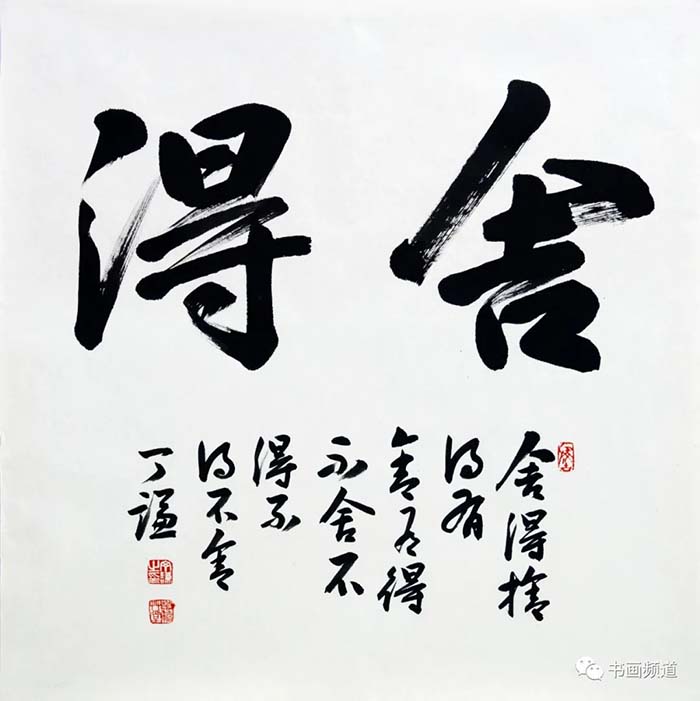 舍得
舍得捨
得有
舍有得
不舍不
得不
得不舍
丁謙
书画频道